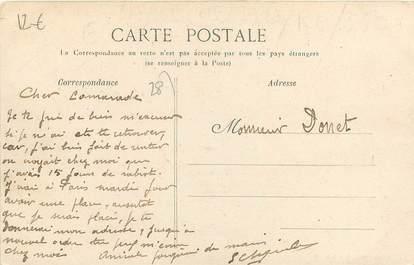 12€
CARTE POSTALE
La Correspondance au recto n'est pas acceptée par tous les pays étrangers
(se renseigner à la Poste)
Correspondance
Adresse
28
Cher Camarade
Je te prie de bien m'excuser
si je n'ai été te retrouver,
car, j'ai bien fait de
on voyait chez moi que
j'avais 15 jours de
J'irai à Paris mardi pour
avoir une place, aussitot
que je serais placé, je te
donnerai mon adresse, jusqu'à
nouvel ordre tu peux m'écrire
chez moi Amicale poignée de main
Monsieur Donet